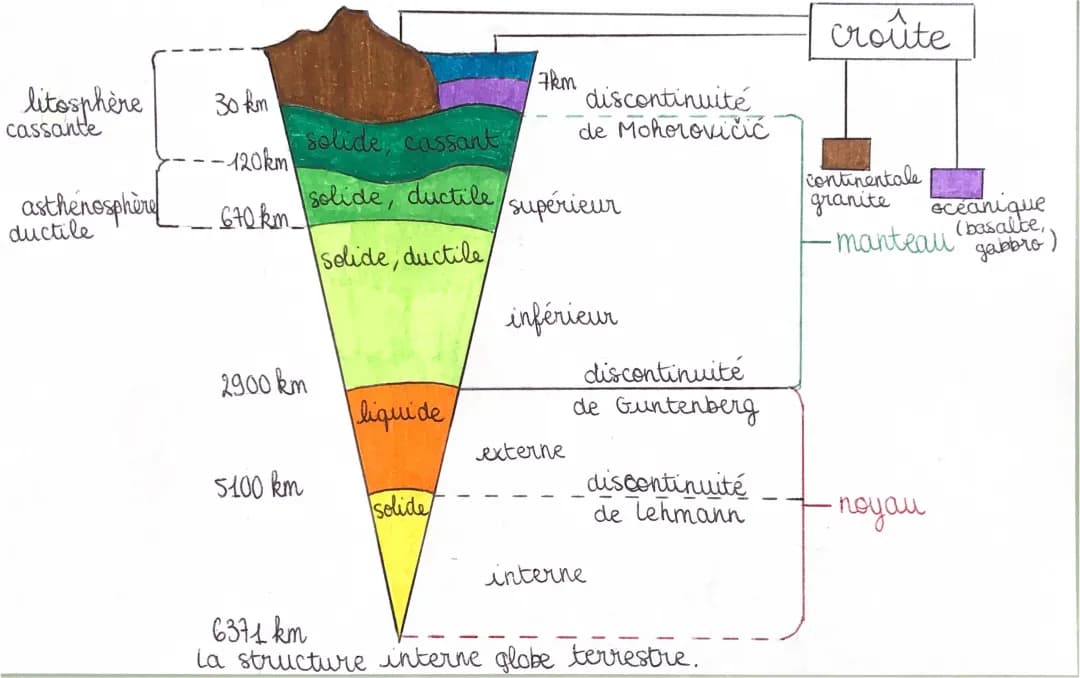 croûte
7km
litosphère
cassante
30 km
discontinuité
de Mohorovičić
solide, cassant
120km
continentale
granite
océanique
(basalte,
gabbro)
asthénosphère
ductile
670 km
solide, ductile
supérieur
manteau
solide, ductile
inférieur
2900 km
discontinuité
de Guntenberg
liquide
externe
5100 km
discontinuité
de Lehmann
solide
noyau
interne
6371 km
La structure interne globe terrestre.